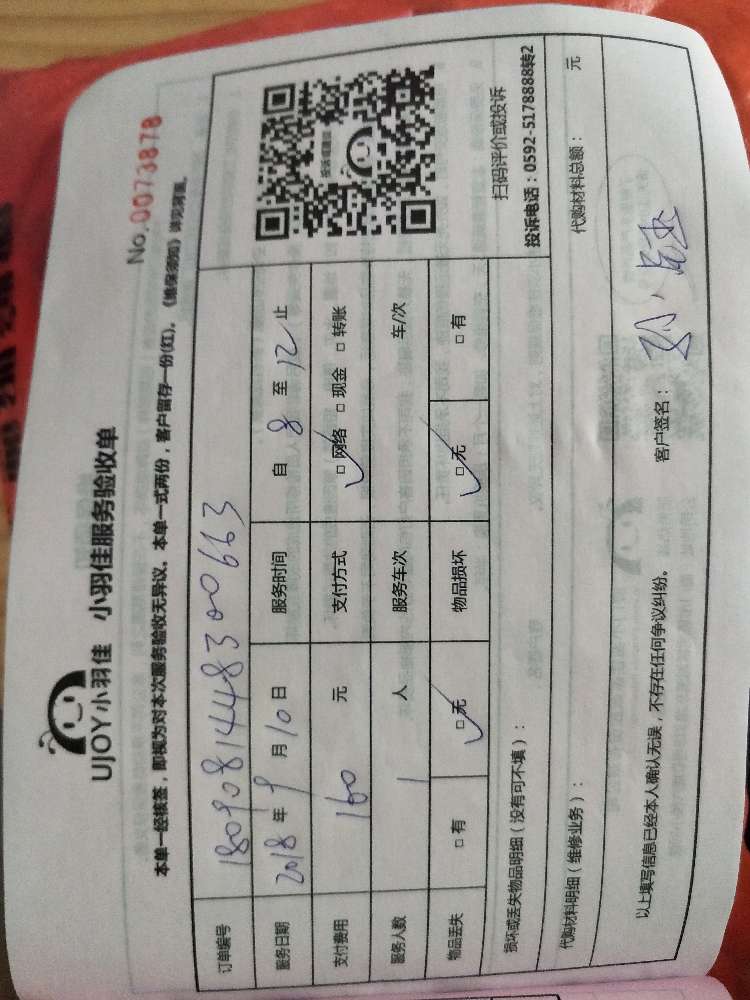 UJOY小羽佳 小羽佳服务验收单
No.0073878
本单一经核签，即视为对本次服务验收无异议。本单一式两份，客户留存一份(红)。《维保须知》详见背面。
订单编号 180908144830066 3
服务日期 2018年9月10日 服务时间 自 8 至 12 止
支付费用 160 元 支付方式 □网络 □现金 □转账
服务人数 1 人 服务车次 车/次
物品丢失 □有 □无 物品损坏 □无 □有
扫码评价或投诉
投诉电话：0592-5178888转2
损坏或丢失物品明细（没有可不填）：
代购材料明细（维修业务）： 代购材料总额： 元
以上填写信息已经本人确认无误，不存在任何争议纠纷。
客户签名：